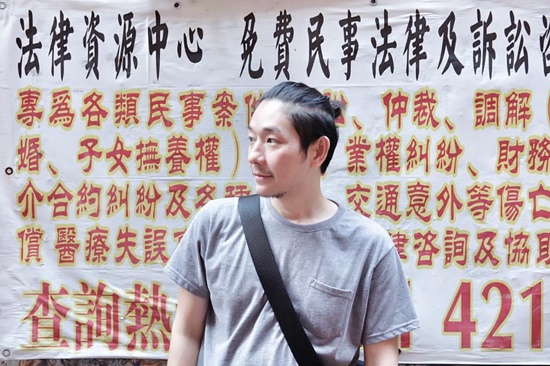 法律資源中心 免費民事法律及訴訟
專為各類民事案件 、仲裁、調解（
婚、子女撫養權） 業權糾紛、財務
介合約糾紛及各 交通意外等傷亡
償醫療失誤 律咨詢及協助
查詢熱 421